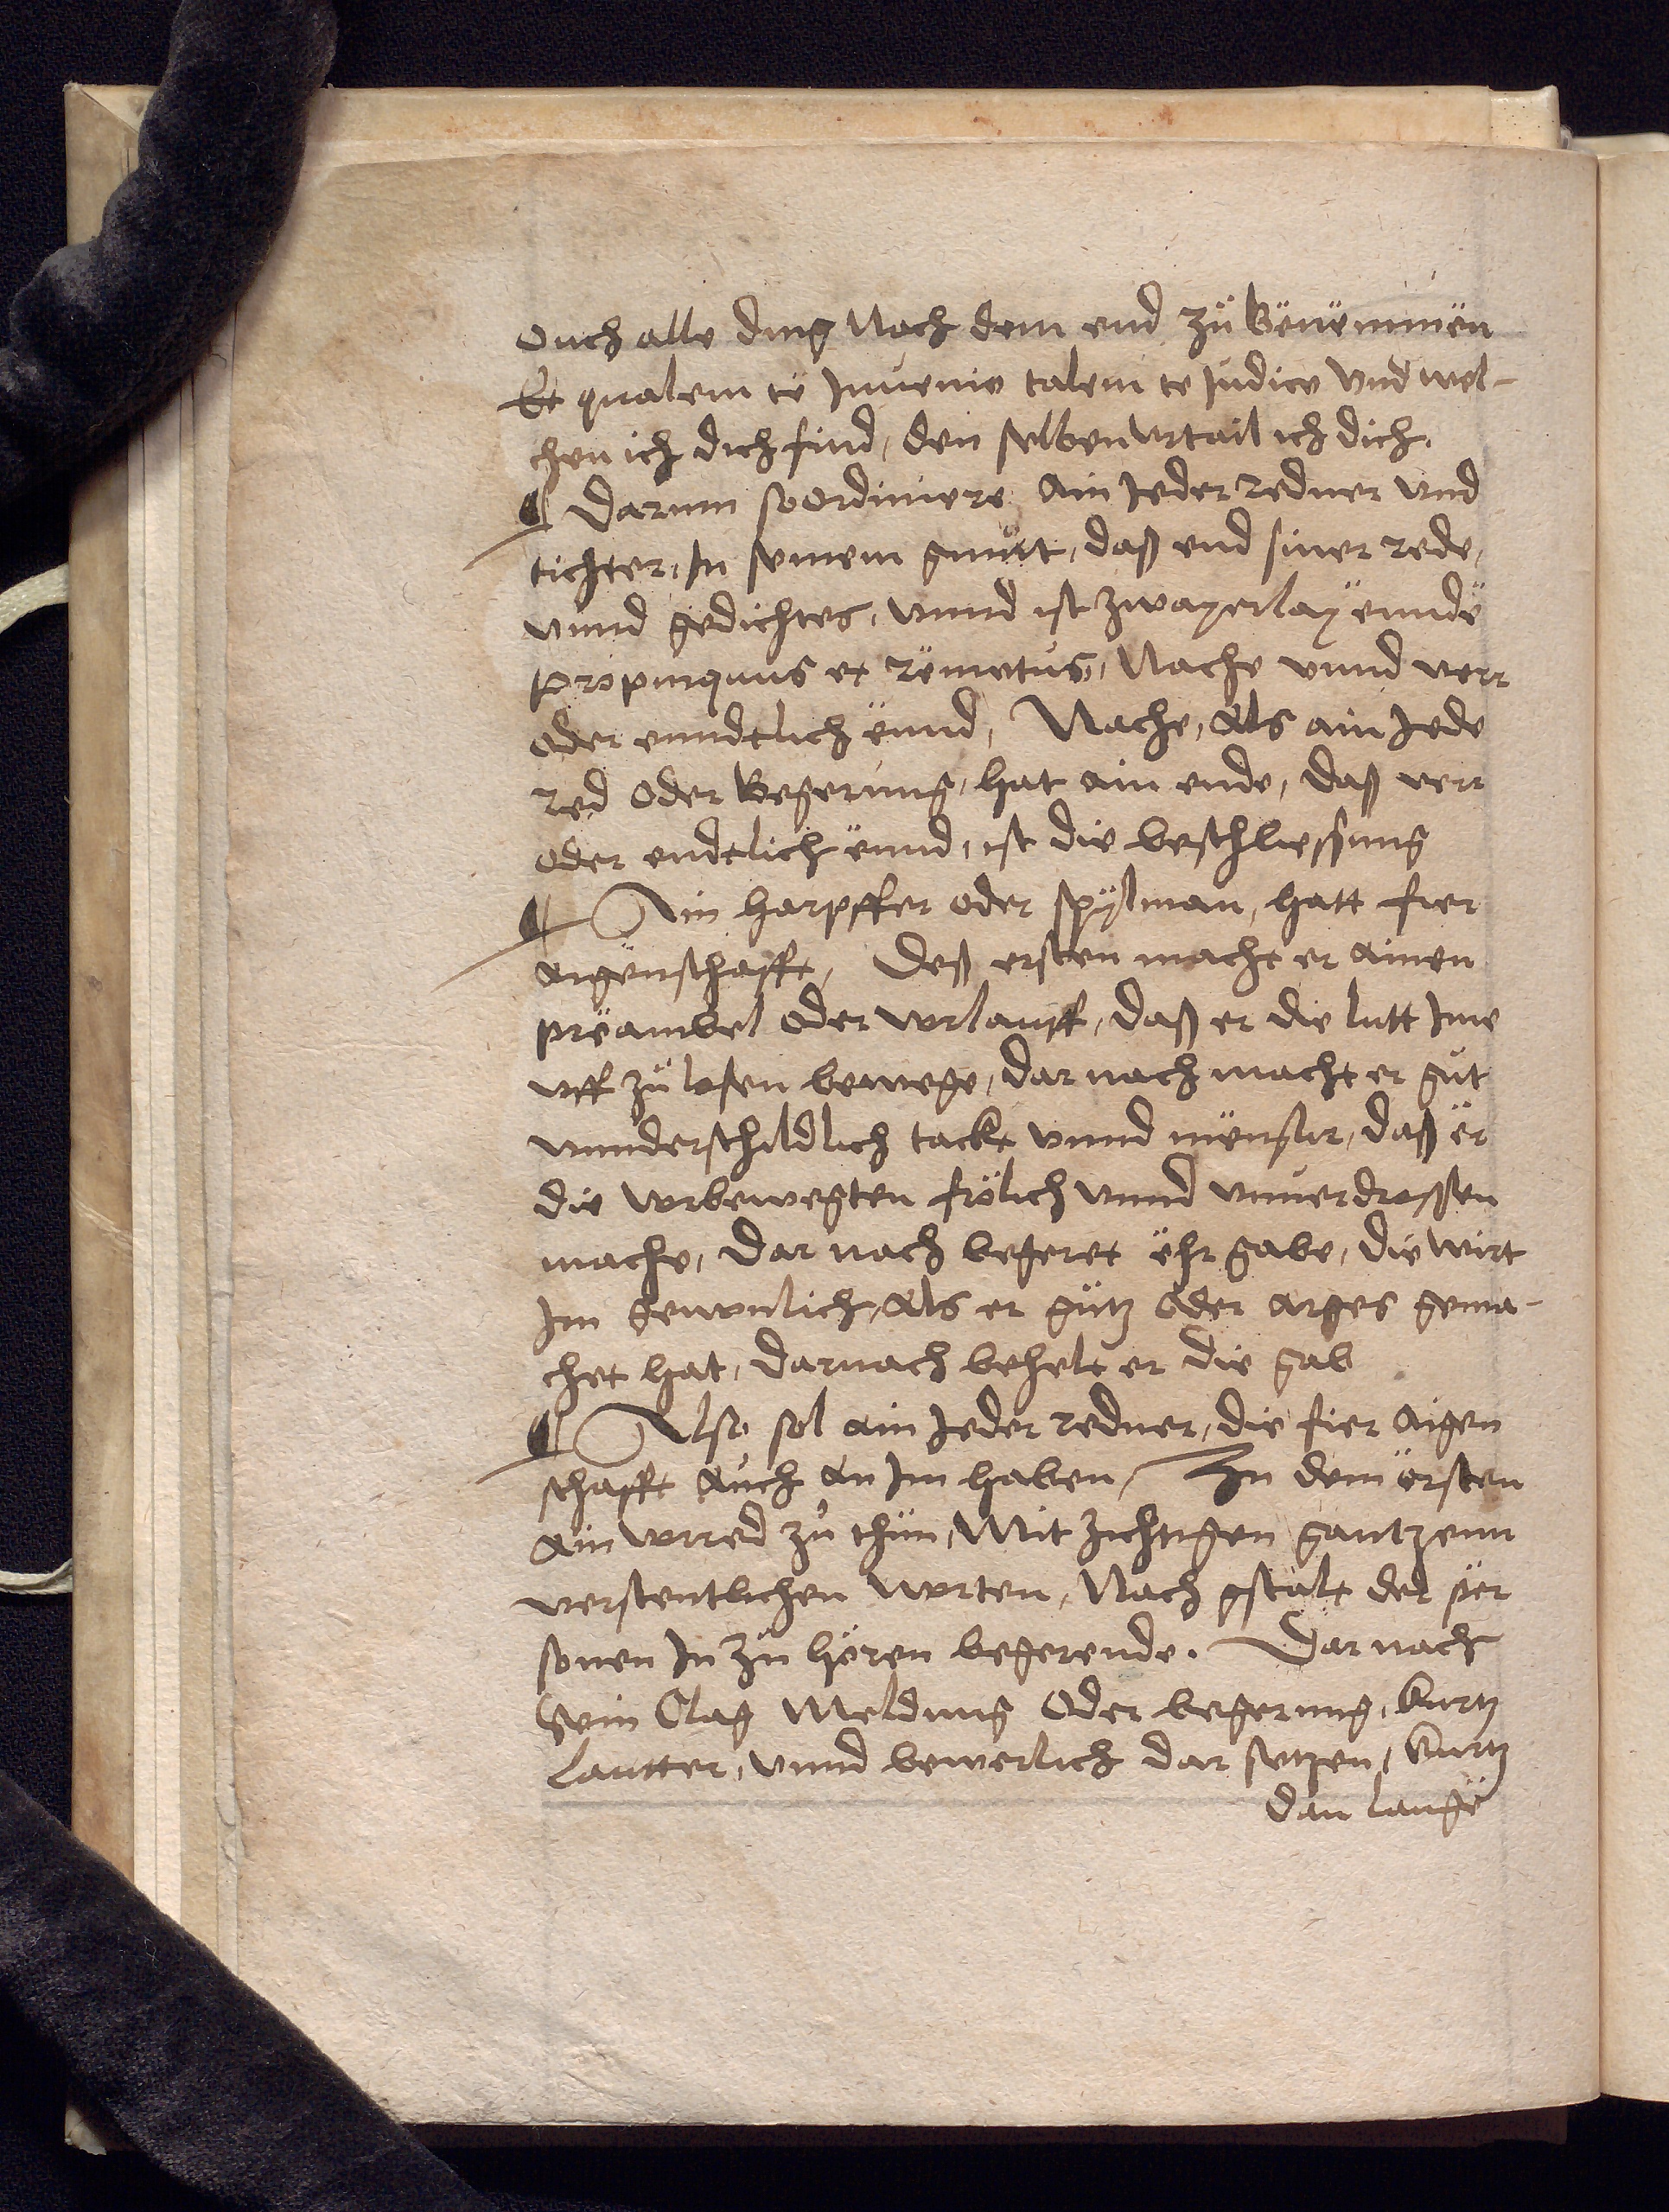 Ouch alle ding Nach dem end zů Benemmen
Et qualem te Inuenio talem te Judico Vnd wel-
chen ich dich find, den selben vrtail ich dich.
¶ Darum so ordiniere Ain Jeder redner Vnd
tichter, In seinem gmüt, daß end siner rede,
vnnd gedichtes, vnnd ist zwayerlay ennde
Propinquus et remotus, Nache vnnd verr
oder enndtlich ennd, Nache, Als ain Jede
red oder Begerung, hat ain ende, Daß verr
oder endtlich ennd, ist die beschliessung
¶ Ain harpffer oder spylman, hatt fier
aigenschafft, Deß ersten macht er ainen
preambel oder vorlauff, daß er die lutt Ime
vff zů losen bewege, dar nach macht er gůt
vnnderschidlich tackt vnnd mensur, daß er
die vorbewegten frölich vnnd vnuerdrossen
mache, Dar nach begeret ehr gabe, die wirt
Im gewonlich, Als er gůtz oder arges gema-
chet hat, Darnach behelt er die gab
¶ Also sol ain Jeder redner, die fier Aigen
schafft Auch An Im haben, Zu dem ersten
Ain vorred zů thůn, Mit zichtigen gantzenn
verstentlichen worten, Nach gstalt der per
sonen In zů hören begerende. Dar nach
Sein Clag Meldung Oder begerung, kurtz
Lautter, vnnd bewerlich dar setzen, kurtz
dan lange